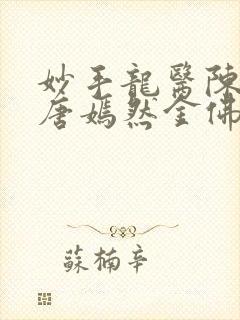 妙手龍醫陳
唐嫣然全佛
蘇楠辛